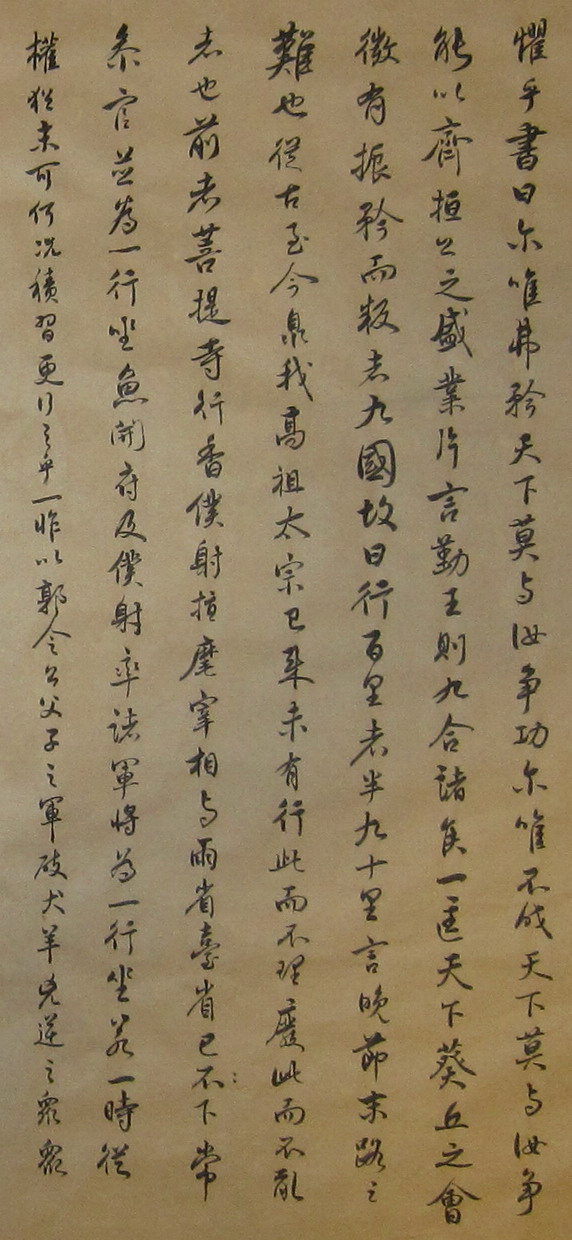 懼乎書曰尔唯弗矜天下莫与汝争功尔唯不伐天下莫与汝争
能以齊桓公之盛業片言勤王則九合諸侯一匡天下葵丘之會
微有振矜而叛者九國故曰行百里者半九十里言晚節末路之
難也從古至今泉我高祖太宗已来未有行此而不理廢此而不亂
者也前者菩提寺行香僕射指麾宰相与兩省臺省已下常
参官並為一行坐魚開府及僕射率諸軍將為一行坐若一時從
權猶未可何况積習更行之乎一昨以郭令公父子之軍破犬羊凶逆之衆衆